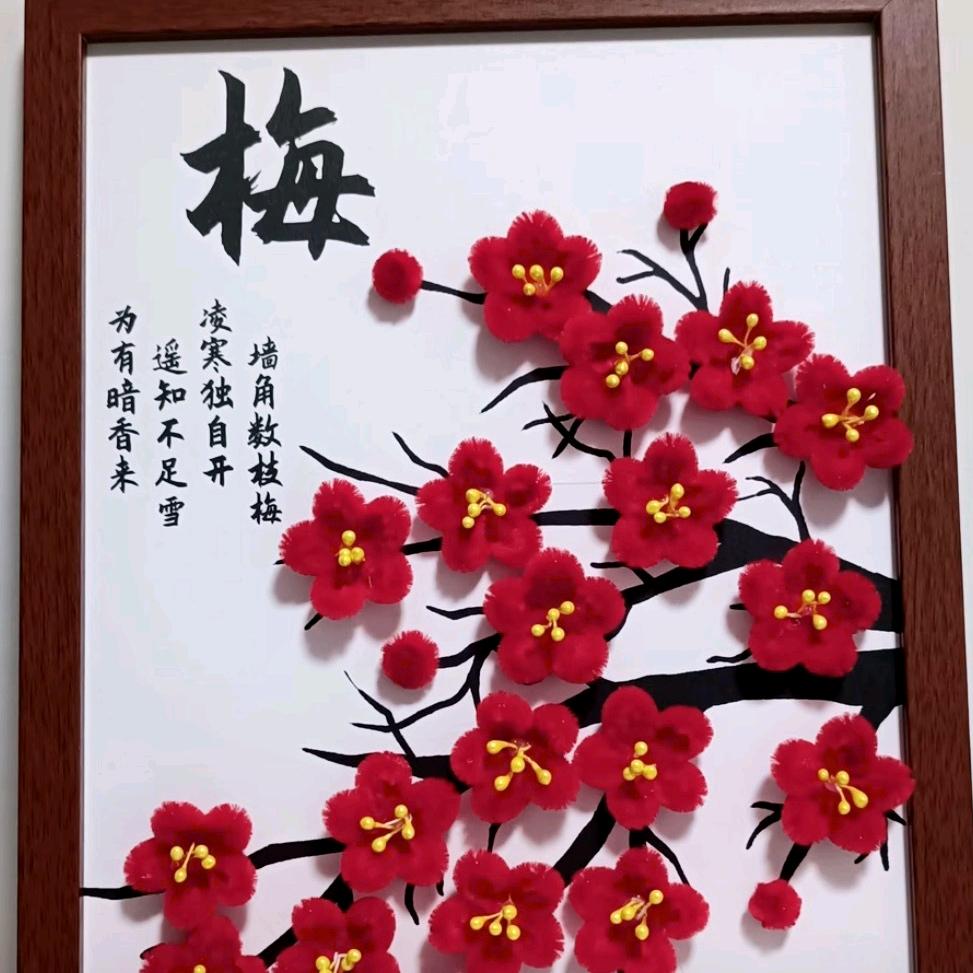 梅
墙角数枝梅
凌寒独自开
遥知不足雪
为有暗香来